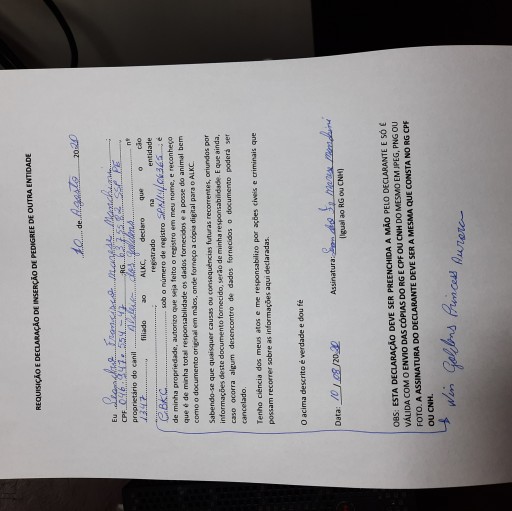 REQUISIÇÃO E DECLARAÇÃO DE INSERÇÃO DE PEDIGREE DE OUTRA ENTIDADE
10 de Agosto 2020
Eu Francisco
CPF RG SSP PE
proprietário do canil dos goldens nº
1347 filiado ao ALKC, declaro que o cão
registrado na entidade
CBKC sob o número de registro é
de minha propriedade, autorizo que seja feito o registro em meu nome, e reconheço
que é de minha total responsabilidade os dados fornecidos e a posse do animal bem
como o documento original em mãos, onde forneço a cópia digital para o ALKC.
Sabendo-se que quaisquer causas ou consequências futuras recorrentes, oriundos por
informações deste documento fornecido, serão de minha responsabilidade. E que ainda,
caso ocorra algum desencontro de dados fornecidos o documento poderá ser
cancelado.
Tenho ciência dos meus atos e me responsabilizo por ações cíveis e criminais que
possam recorrer sobre as informações aqui declaradas.
O acima descrito é verdade e dou fé
Data: 10/08/2020 Assinatura:
(Igual ao RG ou CNH)
OBS: ESTA DECLARAÇÃO DEVE SER PREENCHIDA A MÃO PELO DECLARANTE E SÓ É
VÁLIDA COM O ENVIO DAS COPIAS DO RG E CPF OU CNH DO MESMO EM JPEG, PNG OU
FOTO. A ASSINATURA DO DECLARANTE DEVE SER A MESMA QUE CONSTA NO RG CPF
OU CNH.
Win Goldens Princess Aurora